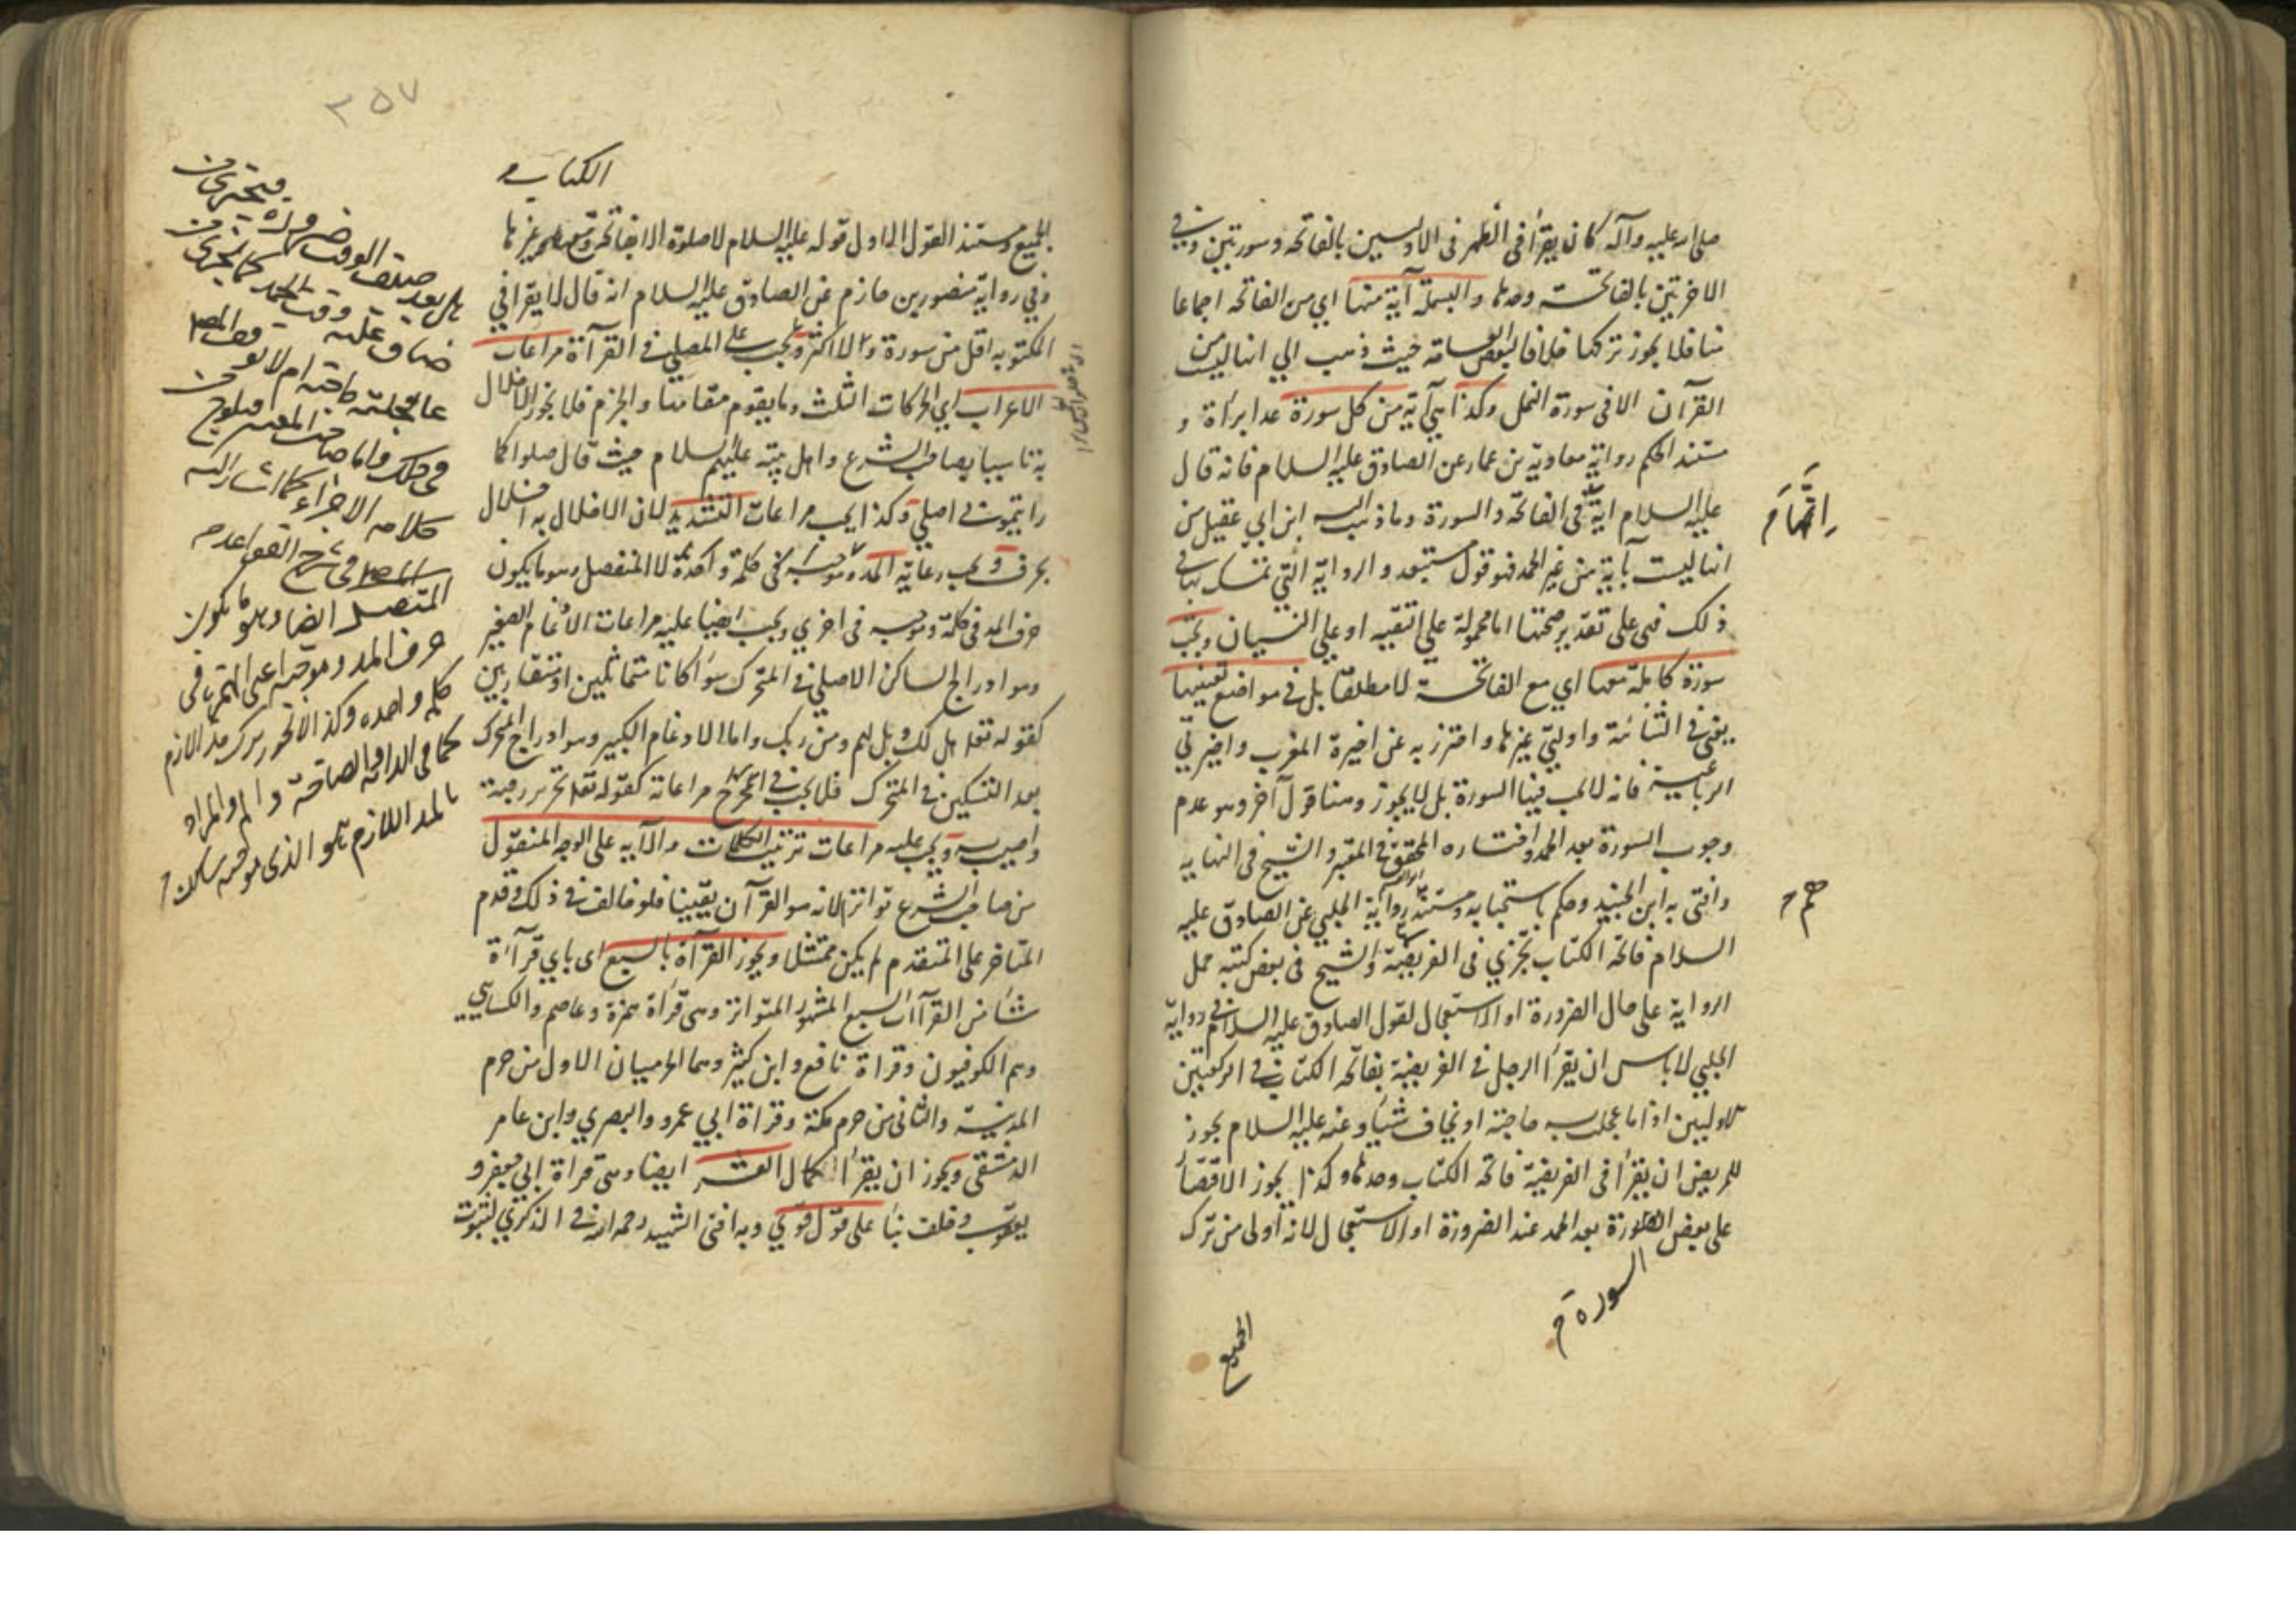 صلى الله عليه وآله كان يقرأ في الظهر في الاوليين بالفاتحة وسورتين وفي
الاخرتين بالفاتحة وحدها والبسملة آية منها اي من الفاتحة اجماعا
منا فلا يجوز تركها خلافا لبعض العامة حيث ذهب الي انها ليست من
القرآن الا في سورة النمل وكذا هي آية من كل سورة عدا براءة و
مستند الحكم رواية معاوية بن عمار عن الصادق عليه السلام فانه قال
عليه السلام آية في الفاتحة والسورة وما ذهب اليه ابن ابي عقيل من
انها ليست بآية من غير الحمد فهو قول مستبعد والرواية التي تمسك بها في
ذلك فهي على تقدير صحتها اما محمولة على التقية او علي النسيان ويجب
سورة كاملة معها اي مع الفاتحة لا مطلقا بل في مواضع تعينها
يعني في الثنائية واوليي غيرها واحترز به عن اخيرة المغرب واخيرتي
الرباعية فانه لا يجب فيها السورة بل لا يجوز وهنا قول آخر وهو عدم
وجوب السورة بعد الحمد واختاره المحقق في المعتبر والشيخ في النهاية
وافتى به ابن الجنيد وحكم باستحبابه ومستنده رواية الحلبي عن الصادق عليه
السلام فاتحة الكتاب تجزي في الفريضة والشيخ في بعض كتبه حمل
الرواية على حال الضرورة او الاستعجال لقول الصادق عليه السلام في رواية
الحلبي لا باس ان يقرأ الرجل في الفريضة بفاتحة الكتاب في الركعتين
الاوليين اذا ما عجلت به حاجة او يخاف شيئا وعنه عليه السلام يجوز
للمريض ان يقرأ في الفريضة فاتحة الكتاب وحدها وكذا يجوز الاقتصار
على بعض السورة بعد الحمد عند الضرورة او الاستعجال لانه أولى من ترك
السورة م
الجميع
٢٥٧
الكتاب
الجميع ومستند القول الاول قوله عليه السلام لا صلوة الا بفاتحة
وفي رواية منصور بن حازم عن الصادق عليه السلام انه قال لا يقرا في
المكتوبة اقل من سورة ولا اكثر ويجب على المصلي في القرآءة مراعات
الاعراب اي الحركات الثلث وما يقوم مقامها والجزم فلا يجوز الاخلال
به تاسيا بصاحب الشرع واهل بيته عليهم السلام حيث قال صلوا كما
رايتموني اصلي وكذا يجب مراعات التشديد لان الاخلال به اخلال
بحرف ويجب رعاية المد وموجبه في كلمة واحدة لا المنفصل وهو ما يكون
حرف المد في كلمة وموجبه في اخري ويجب ايضا عليه مراعات الادغام الصغير
وهو ادراج الساكن الاصلي في المتحرك سوآء كانا متماثلين او متقاربين
كقوله تعلا هل لك وبل لهم ومن ربك واما الادغام الكبير وهو ادراج المتحرك
بعد التسكين في المتحرك فلا يجب مراعاته كقوله تعلا تحرير رقبة
ويجب عليه مراعات ترتيب الكلمات والآيه على الوجه المنقول
من صاحب الشرع تواترا لانه هو القرآن يقينا فلو خالف في ذلك وقدم
المتاخر على المتقدم لم يكن ممتثلا ويجوز القرآءة بالسبع اي باي قرآءة
شاء من القرآءات السبع المشهور المتواتر وهي قراءة حمزة وعاصم والكسايي
وهم الكوفيون وقراءة نافع وابن كثير وهما الحرميان الاول من حرم
المدينة والثاني من حرم مكة وقراءة ابي عمرو والبصري وابن عامر
الدمشقي ويجوز ان يقرأ العشر ايضا وهي قراءة ابي جعفر و
يعقوب وخلف بناء على قول قوي وبه افتى الشهيد رحمه الله في الذكري لثبوت
كلامه الاجزاء كما اشار اليه
المتصل ايضا وهو ما يكون
حرف المد وموجبه اعني الهمزة في
كلمه واحده وكذا
والمراد
بالمد اللازم هو الذي موجبه ساكن